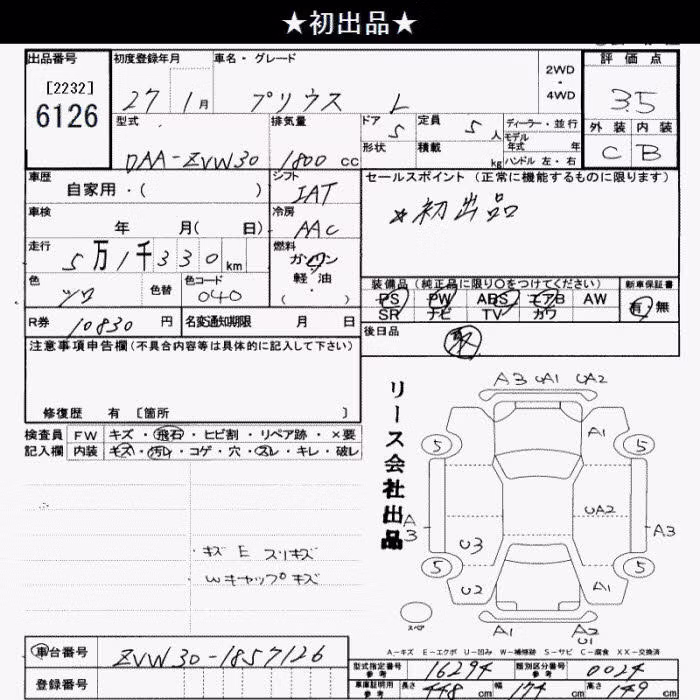 ★初出品★
出品番号 初度登録年月 車名・グレード 2WD・4WD 評価点
[2232]
6126 27 1月 プリウス L 3.5
型式 排気量 ドア 5 定員 5人 ディーラー・並行 外装 内装
DAA-ZVW30 1800cc 形状 積載 kg モデル年式 年 C B
ハンドル 左・右
車歴 シフト セールスポイント(正常に機能するものに限ります)
自家用・( ) IAT ★初出品
車検 冷房
年 月( 日) AAC
走行 燃料
5万1千330km ガソリン
軽・油
・( )
色 色替 色コード 装備品(純正品に限り○をつけてください) 新車保証書
シロ 040 PS PW ABS エアB AW 有・無
SR ナビ TV カワ
R券 10830円 名変通知期限 月 日 後日品
取
注意事項申告欄(不具合内容等は具体的に記入して下さい)
修復歴 有 〔箇所 〕
検査員 FW キズ・飛石・ヒビ割・リペア跡・×要
記入欄 内装 キズ・汚レ・コゲ・穴・スレ・キレ・破レ
リース会社出品
・キズ E スリキズ
・Wキャップキズ
A3 UA1 UA2
5 A1 5
A3 UA2 A3
U3
5 U2 A1 5
スペア A1 A2
U1
A-キズ E-エクボ U-凹み W-補修跡 S-サビ C-腐食 XX-交換済
車台番号 ZVW30-1857126
登録番号
型式指定番号 参考 16294 類別区分番号 参考 0024
車庫証明用 参考 長さ 448cm 幅 174cm 高さ 149cm